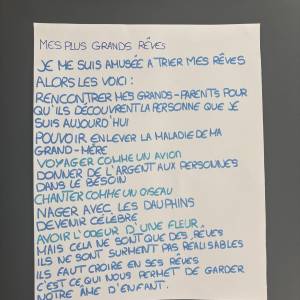 MES PLUS GRANDS RÊVES
JE ME SUIS AMUSÉE A TRIER MES RÊVES
ALORS LES VOICI :
RENCONTRER MES GRANDS-PARENTS POUR
QU'ILS DÉCOUVRENT LA PERSONNE QUE JE
SUIS AUJOURD'HUI
POUVOIR ENLEVER LA MALADIE DE MA
GRAND-MÈRE
VOYAGER COMME UN AVION
DONNER DE L'ARGENT AUX PERSONNES
DANS LE BESOIN
CHANTER COMME UN OISEAU
NAGER AVEC LES DAUPHINS
DEVENIR CÉLÈBRE
AVOIR L'ODEUR D'UNE FLEUR
MAIS CELA NE SONT QUE DES RÊVES
ILS NE SONT SUREMENT PAS RÉALISABLES
IL FAUT CROIRE EN SES RÊVES
C'EST CE QUI NOUS PERMET DE GARDER
NOTRE ÂME D'ENFANT.